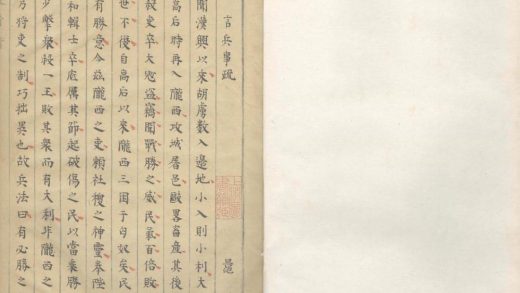 言兵事疏 鼂
聞漢興以來胡虜數入邊地小入則小利大
高后時再入隴西攻城屠邑敺畧畜產其後
殺吏卒大寇盜竊聞戰勝之威民氣百倍敗
世不復自高后以來隴西三困于匈奴矣民
有勝意今茲隴西之吏賴社稷之神靈奉陛
和輯士卒底厲其節起破傷之民以當乘勝
少擊衆殺一王敗其衆而有大利非隴西之
乃將吏之制巧拙異也故兵法曰有必勝之